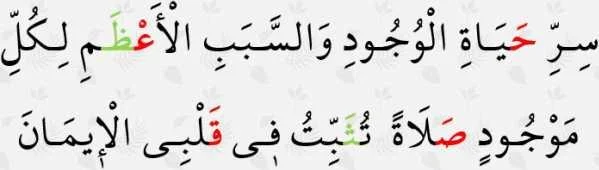 سِرِّ حَيَاةِ الْوُجُودِ وَالسَّبَبِ الْأَعْظَمِ لِكُلِّ
مَوْجُودٍ صَلَاةً تُثَبِّتُ فِى قَلْبِى الْإِيمَانَ